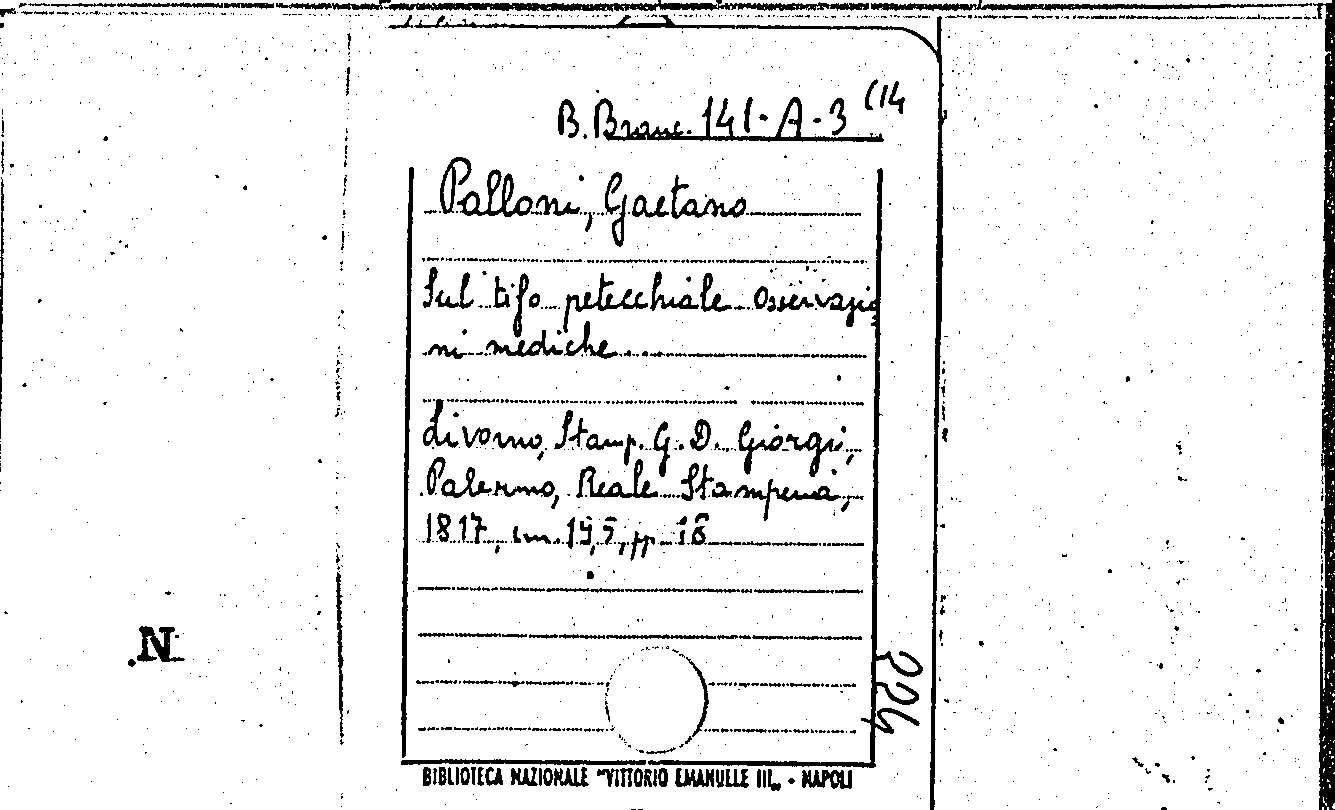 B. Branc. 141-A-3 (14
Palloni, Gaetano
Sul tifo petecchiale. Osservazio
ni mediche...
Livorno, Stamp. G. D. Giorgi,
Palermo, Reale Stamperia,
1817, cm. 19,5, pp. 18
224
N
BIBLIOTECA NAZIONALE "VITTORIO EMANUELE III„ - NAPOLI